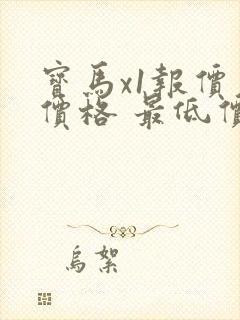 寶馬x1報價
價格 最低價
烏絮